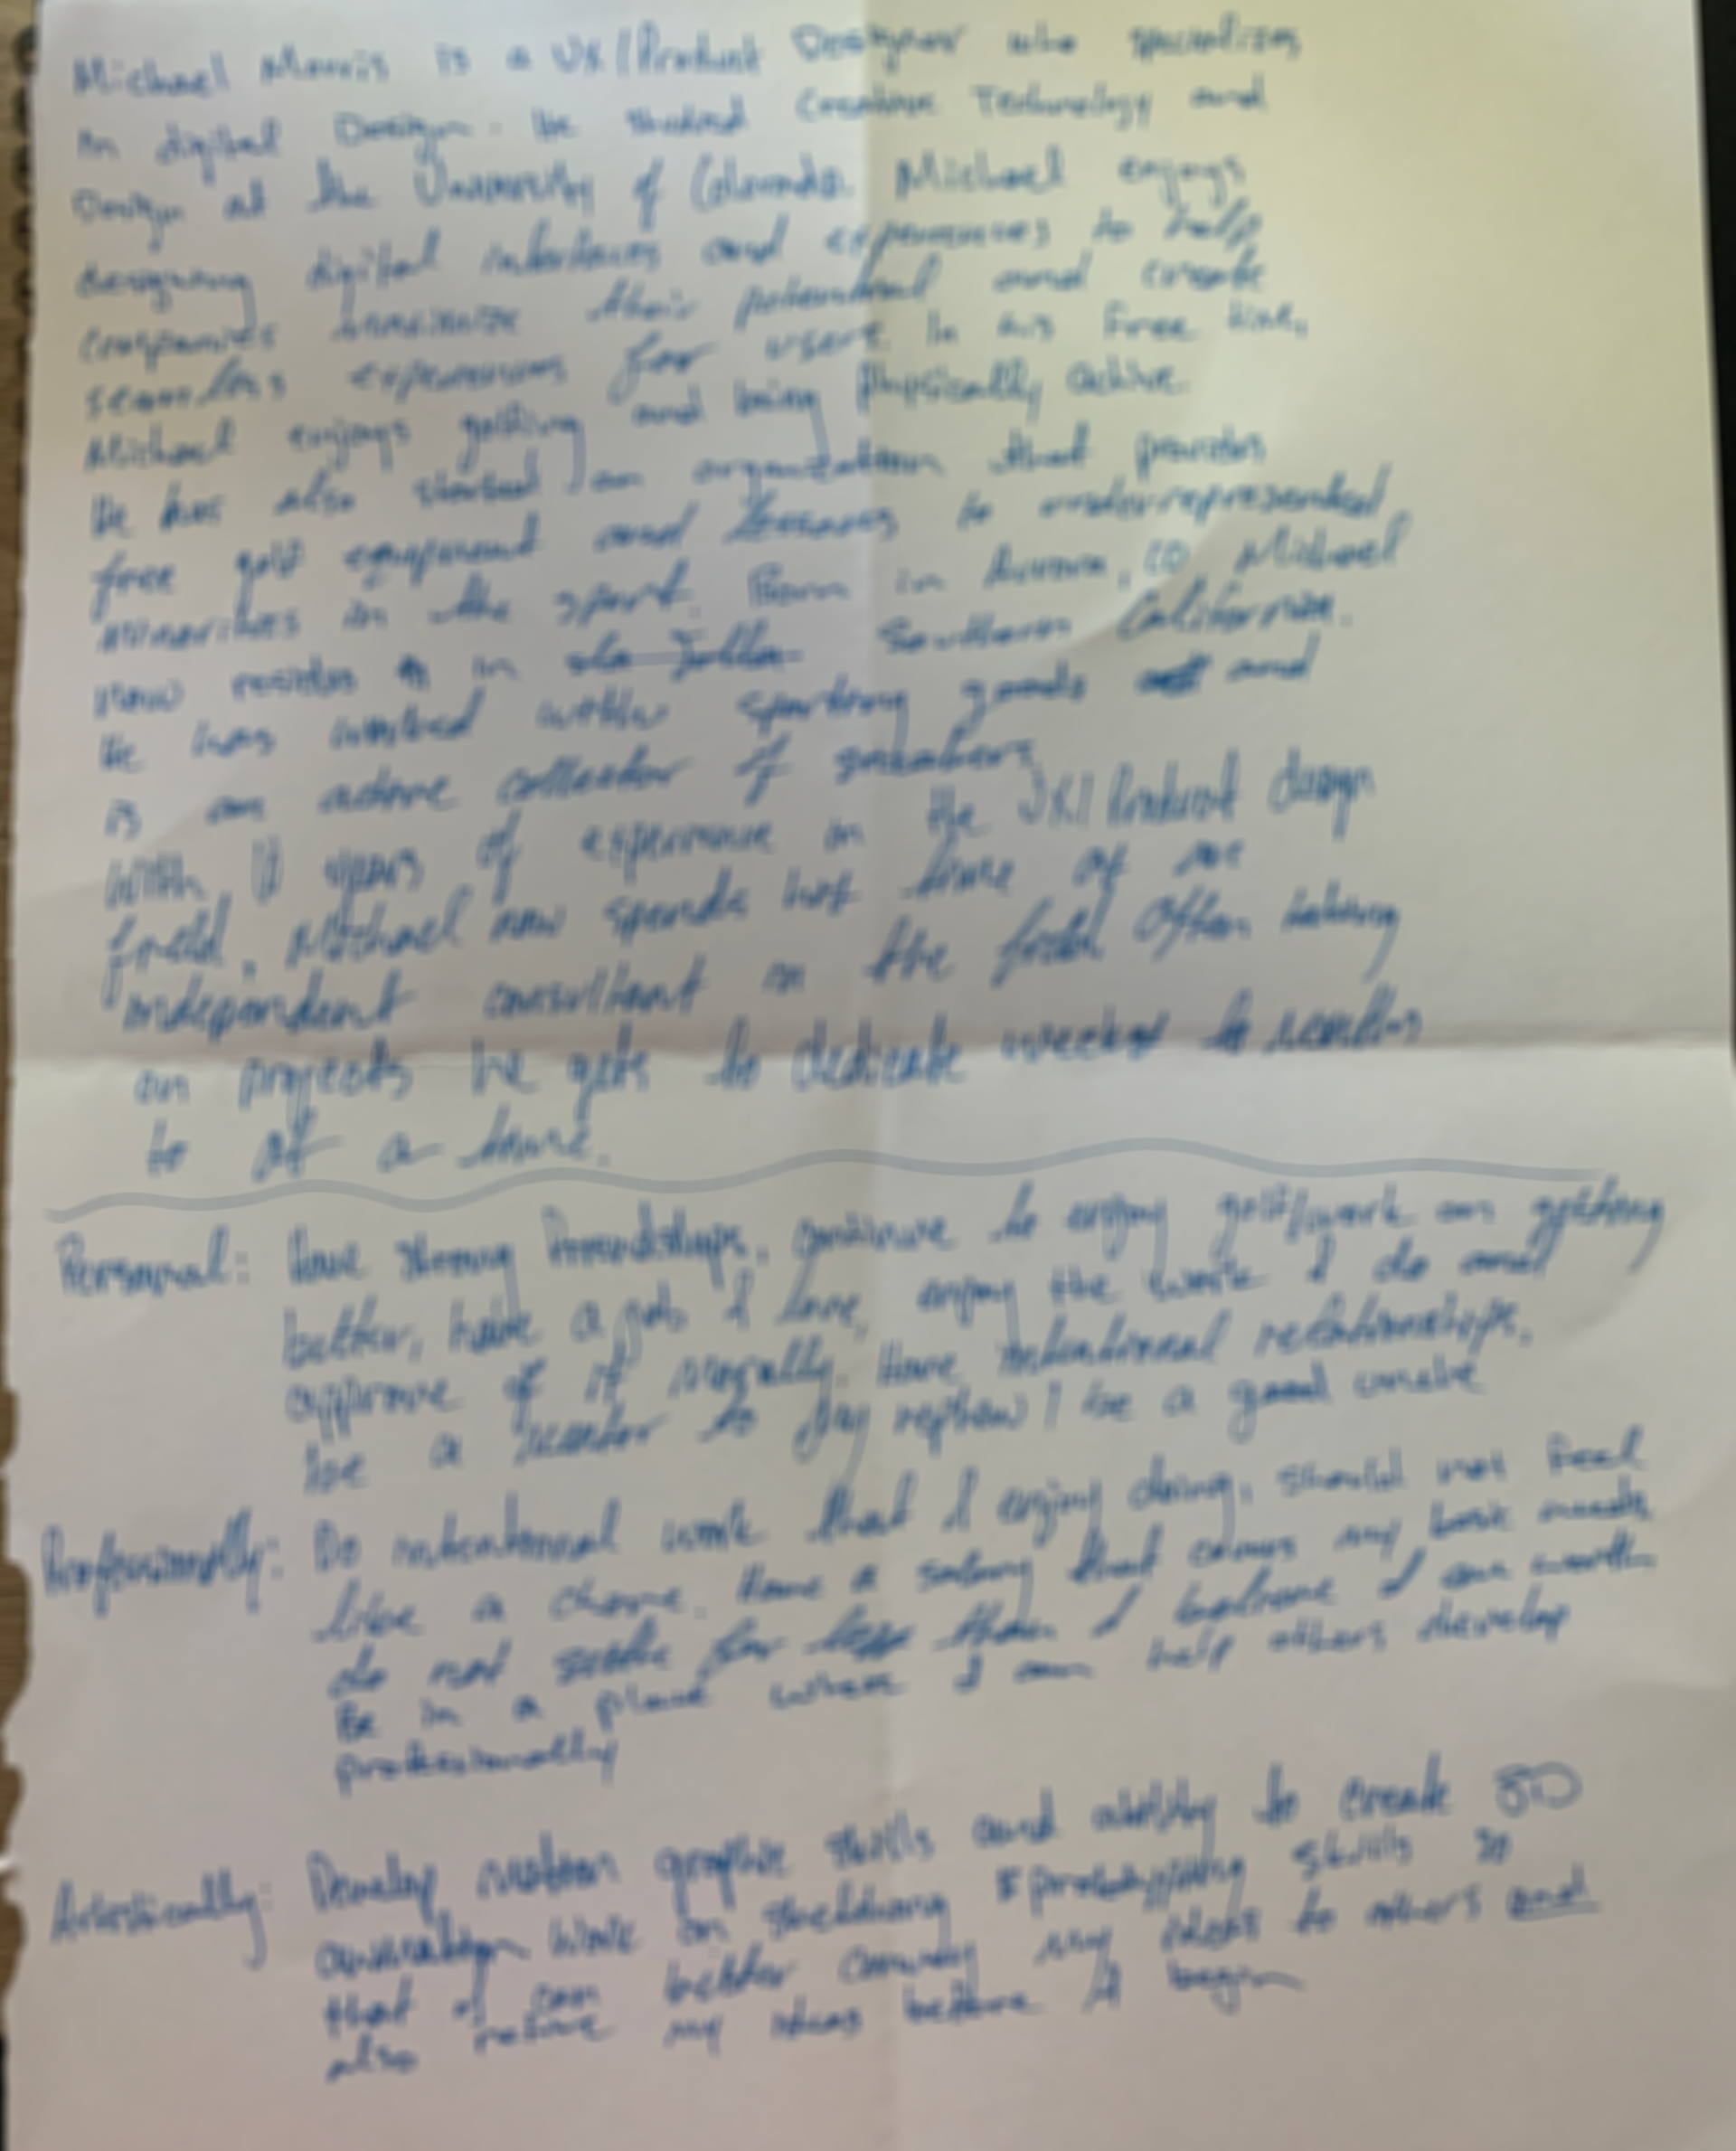 Michael Morris is a UX/Product Designer who specializes
in digital Design. He studied Creative Technology and
Design at the University of Colorado. Michael enjoys
designing digital interfaces and experiences to help
companies maximize their potential and create
seamless experiences for users. In his free time,
Michael enjoys golfing and being physically active.
He has also started an organization that provides
free golf equipment and lessons to underrepresented
minorities in the sport. Born in Aurora, CO Michael
now resides in La Jolla Southern California.
He has worked with sporting goods and
is an active collector of sneakers.
With years of experience in the UX/Product design
field, Michael now spends his time as an
independent consultant in the field often taking
on projects he gets to dedicate weeks to months
to at a time.
Personal: Have strong friendships, continue to enjoy golf/work on getting
better, have a job I love, enjoy the work I do and
approve of it morally. Have intentional relationships,
be a mentor to my nephew / be a good uncle
Professionally: Do intentional work that I enjoy doing, should not feel
like a chore. Have a salary that covers my basic needs
do not settle for less than I believe I am worth
Be in a place where I can help others develop
professionally
Artistically: Develop motion graphic skills and ability to create 3D
animation work on sketching & prototyping skills so
that I can better convey my ideas to others and
also refine my ideas before I begin